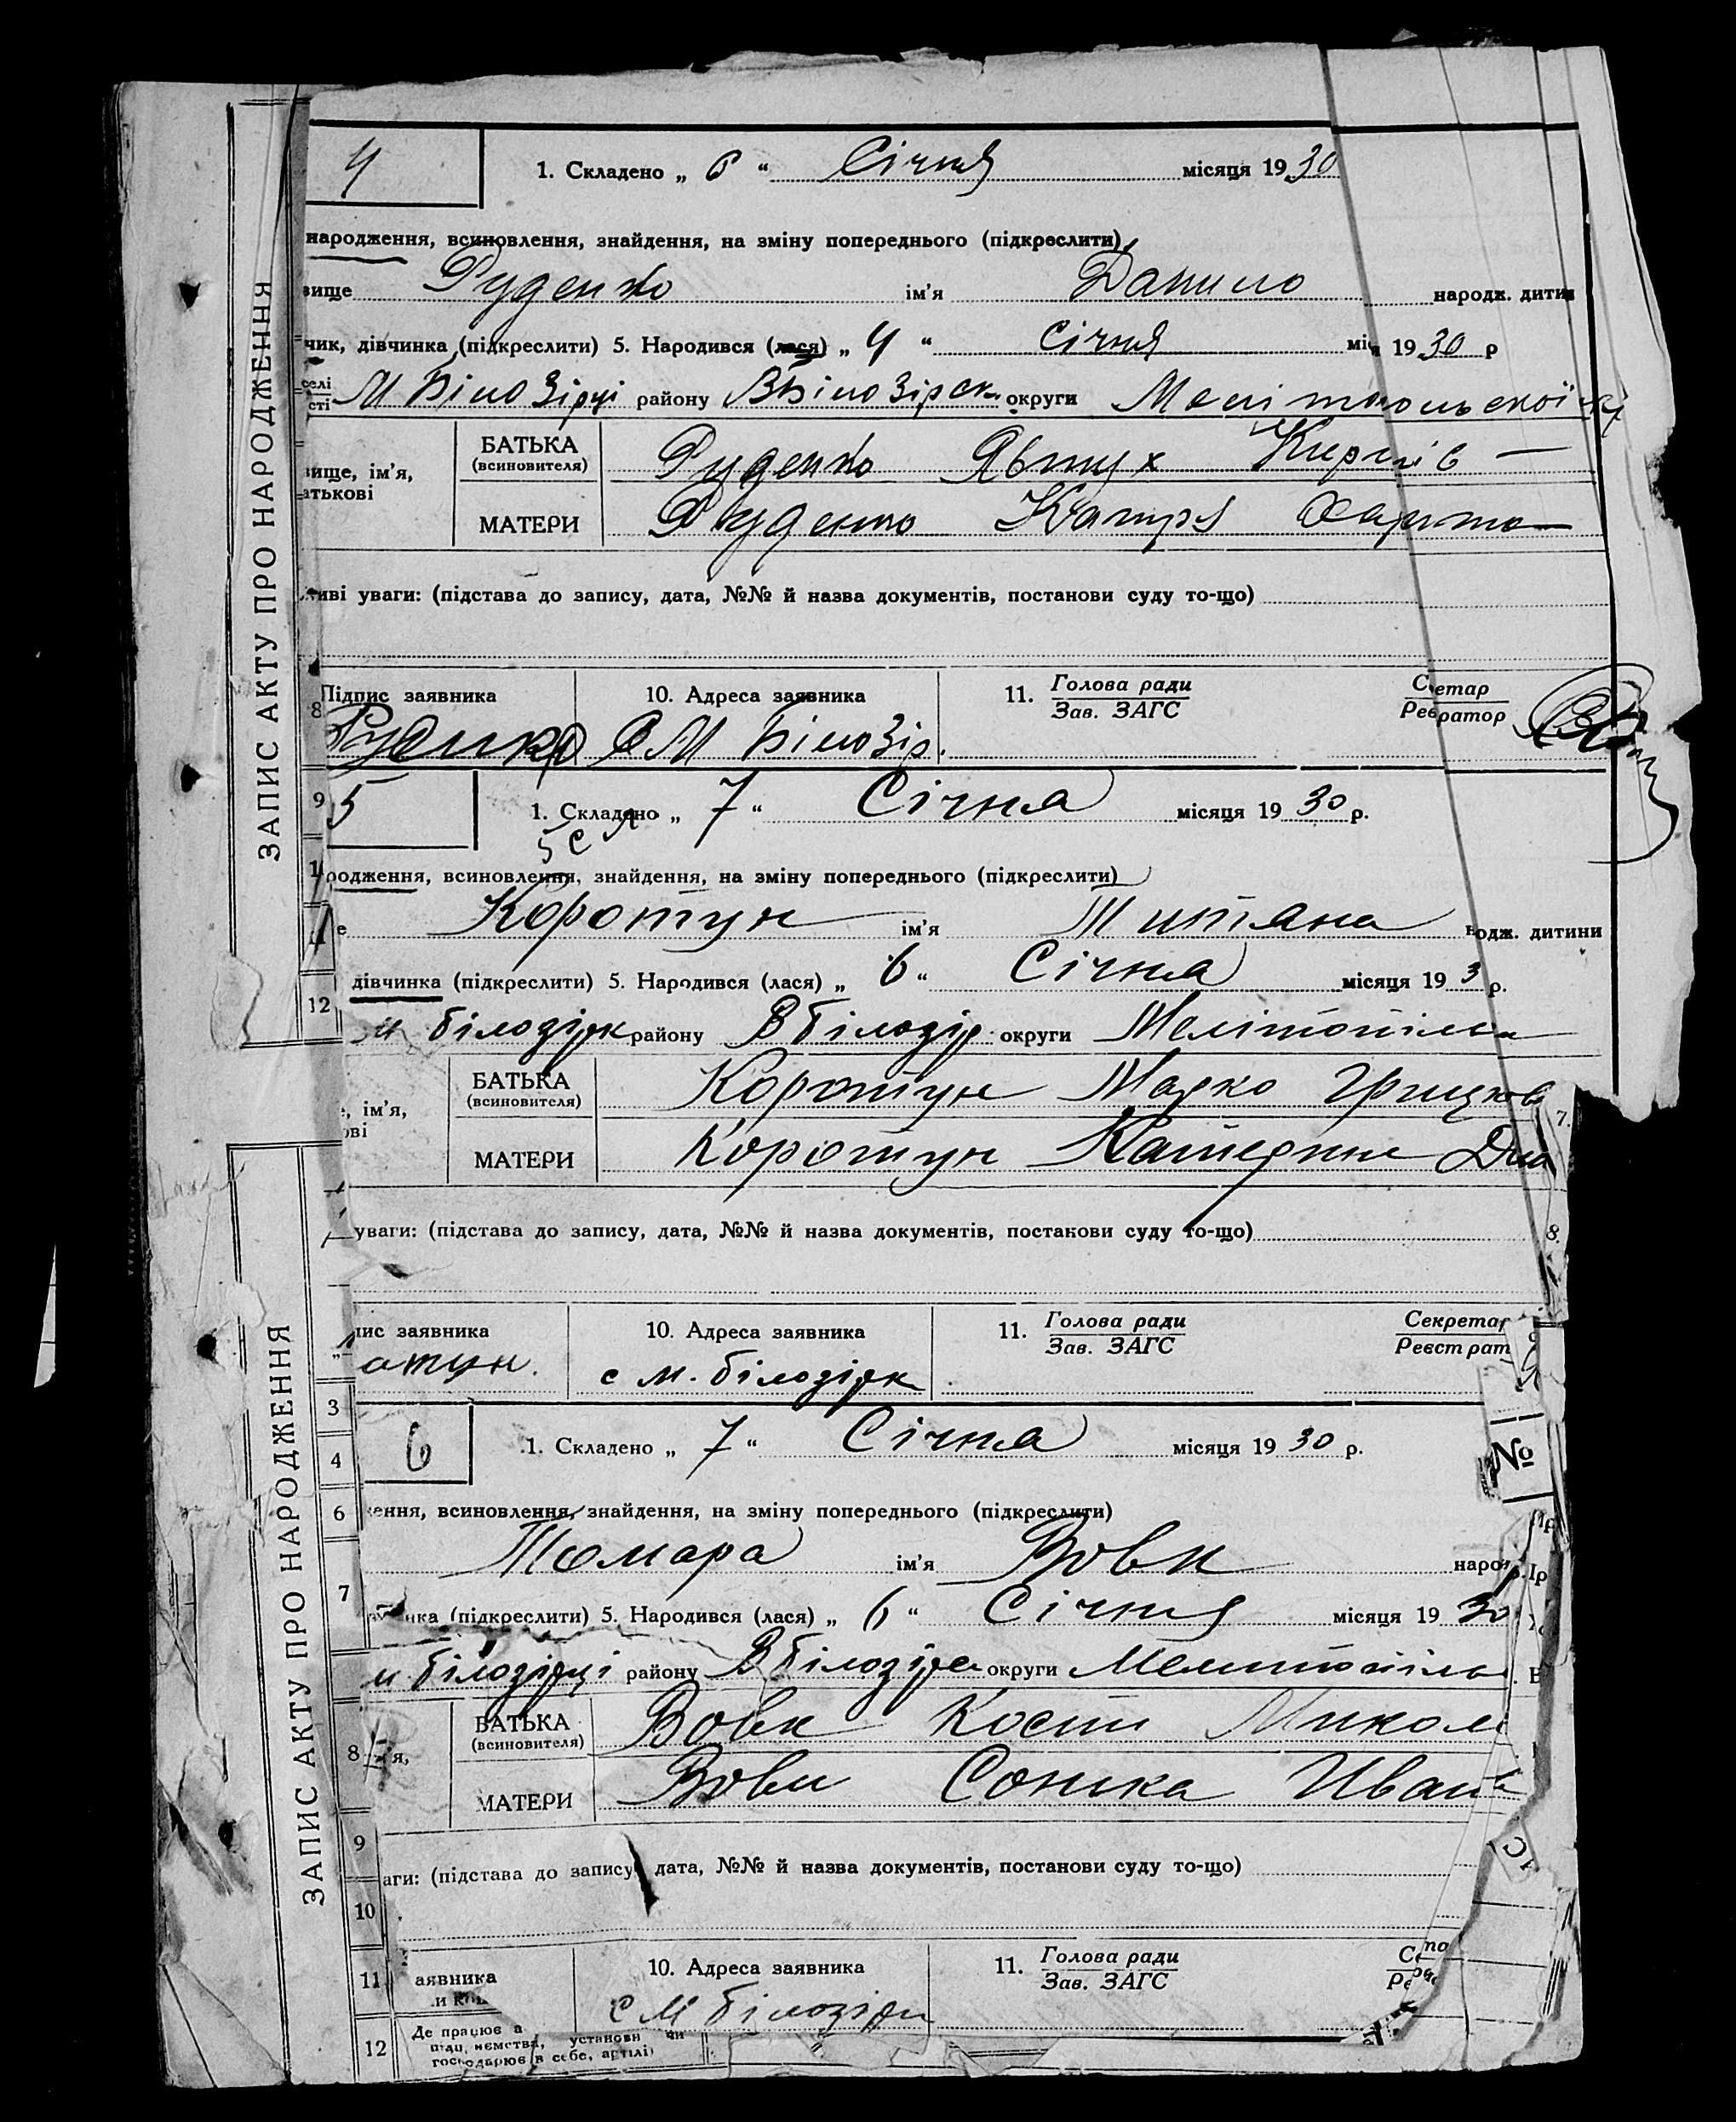 ЗАПИС АКТУ ПРО НАРОДЖЕННЯ
4 1. Складено „ 6 “ Січня місяця 19 30
народження, всиновлення, знайдення, на зміну попереднього (підкреслити)
вище Руденко ім’я Данило народж. дитин
чик, дівчинка (підкреслити) 5. Народився (лася) „ 4 “ Січня міс 19 30 р
селі
сті М Білозірці району ВБілозірск округи
вище, ім’я,
атькові
БАТЬКА
(всиновителя) Руденко Явтух
МАТЕРИ Руденко
ливі уваги: (підстава до запису, дата, №№ й назва документів, постанови суду то-що)
8 Підпис заявника 10. Адреса заявника 11. Голова ради
Зав. ЗАГС
Руденко С М Білозір.
9 5 1. Складено „ 7 “ Січня місяця 19 30 р.
родження, всиновлення, знайдення, на зміну попереднього (підкреслити)
11 е Коротун ім’я Титяна одж. дитини
дівчинка (підкреслити) 5. Народився (лася) „ 6 “ Січня місяця 19 3 р.
12 м білозірк району Вбілозір округи Мелітопіль
, ім’я,
ові
БАТЬКА
(всиновителя) Коротун Марко Грицков
7.
МАТЕРИ Коротун Катерина
уваги: (підстава до запису, дата, №№ й назва документів, постанови суду то-що)
8.
ЗАПИС АКТУ ПРО НАРОДЖЕННЯ
пис заявника 10. Адреса заявника 11. Голова ради
Зав. ЗАГС Секретар
Реєстрат
отун. с м. білозірк
3
4 6 1. Складено „ 7 “ Січня місяця 19 30 р. №
6 ження, всиновлення, знайдення, на зміну попереднього (підкреслити)
Томара ім’я Вовк народ
7 инка (підкреслити) 5. Народився (лася) „ 6 “ Січня місяця 19 30
м білозірці району Вбілозірс округи Мелитопіль
8 я,
БАТЬКА
(всиновителя) Вовк Кость Микол
МАТЕРИ Вовк Сонька Иван
9 аги: (підстава до запису, дата, №№ й назва документів, постанови суду то-що)
10
11 аявника 10. Адреса заявника 11. Голова ради
Зав. ЗАГС
с М білозірк
12 Де працює
установи чи
господарює в себе, артілі